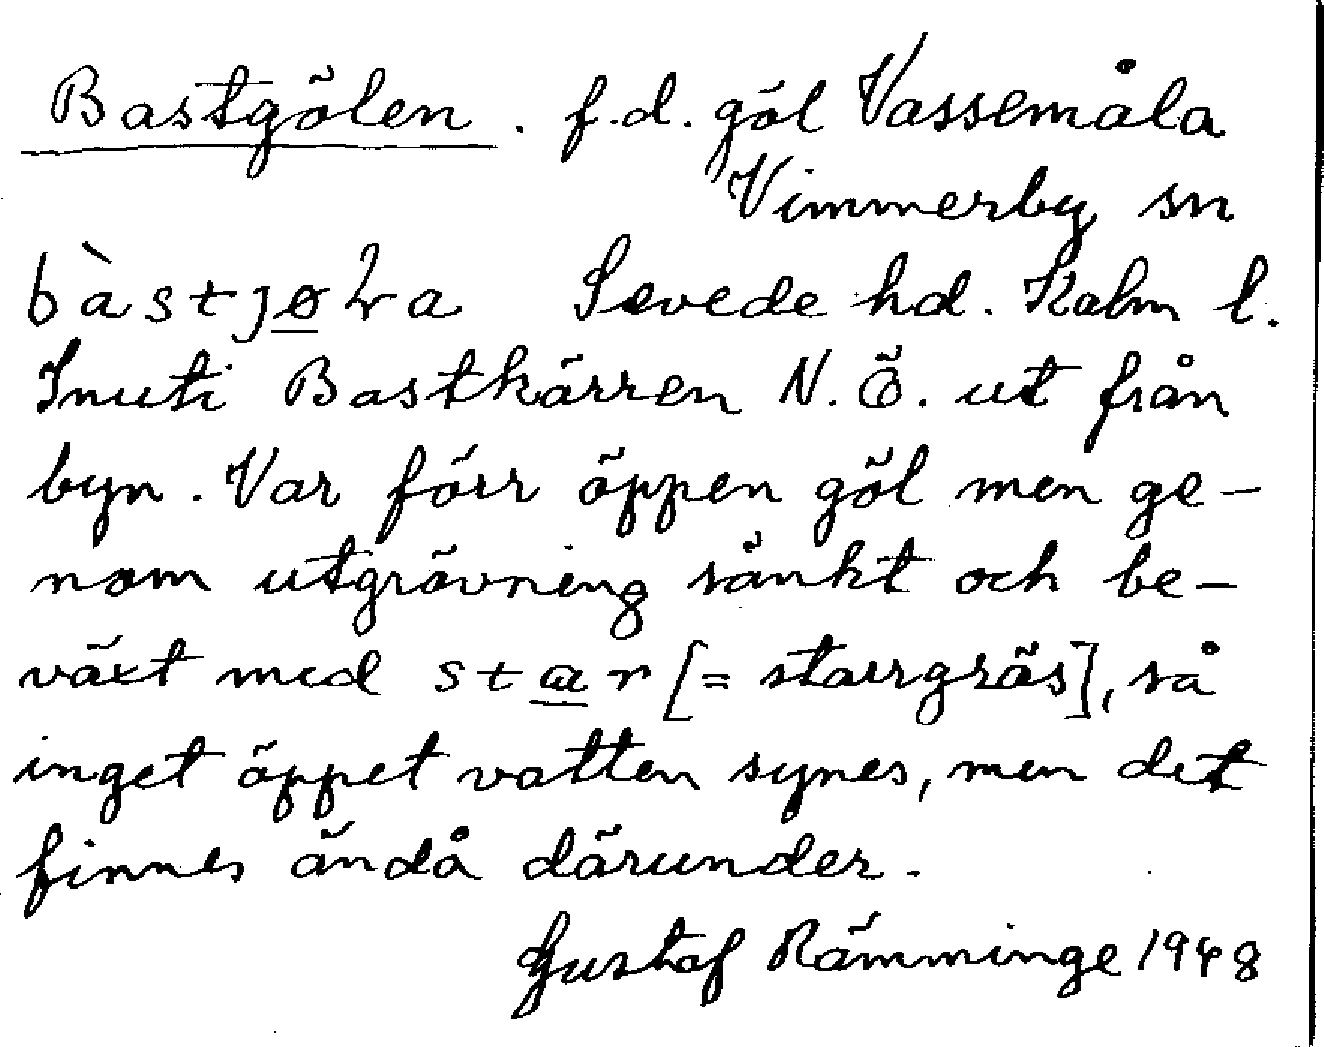 Bastgölen. f.d. göl Vassemåla
Vimmerby sn
bàstjøɽa Sevede hd. Kalm l.
Inuti Bastkärren N.Ö. ut från
byn. Var förr öppen göl men ge-
nom utgrävning sänkt och be-
växt med star [= starrgräs], så
inget öppet vatten synes, men det
finnes ändå därunder.
Gustaf Rämminge 1948